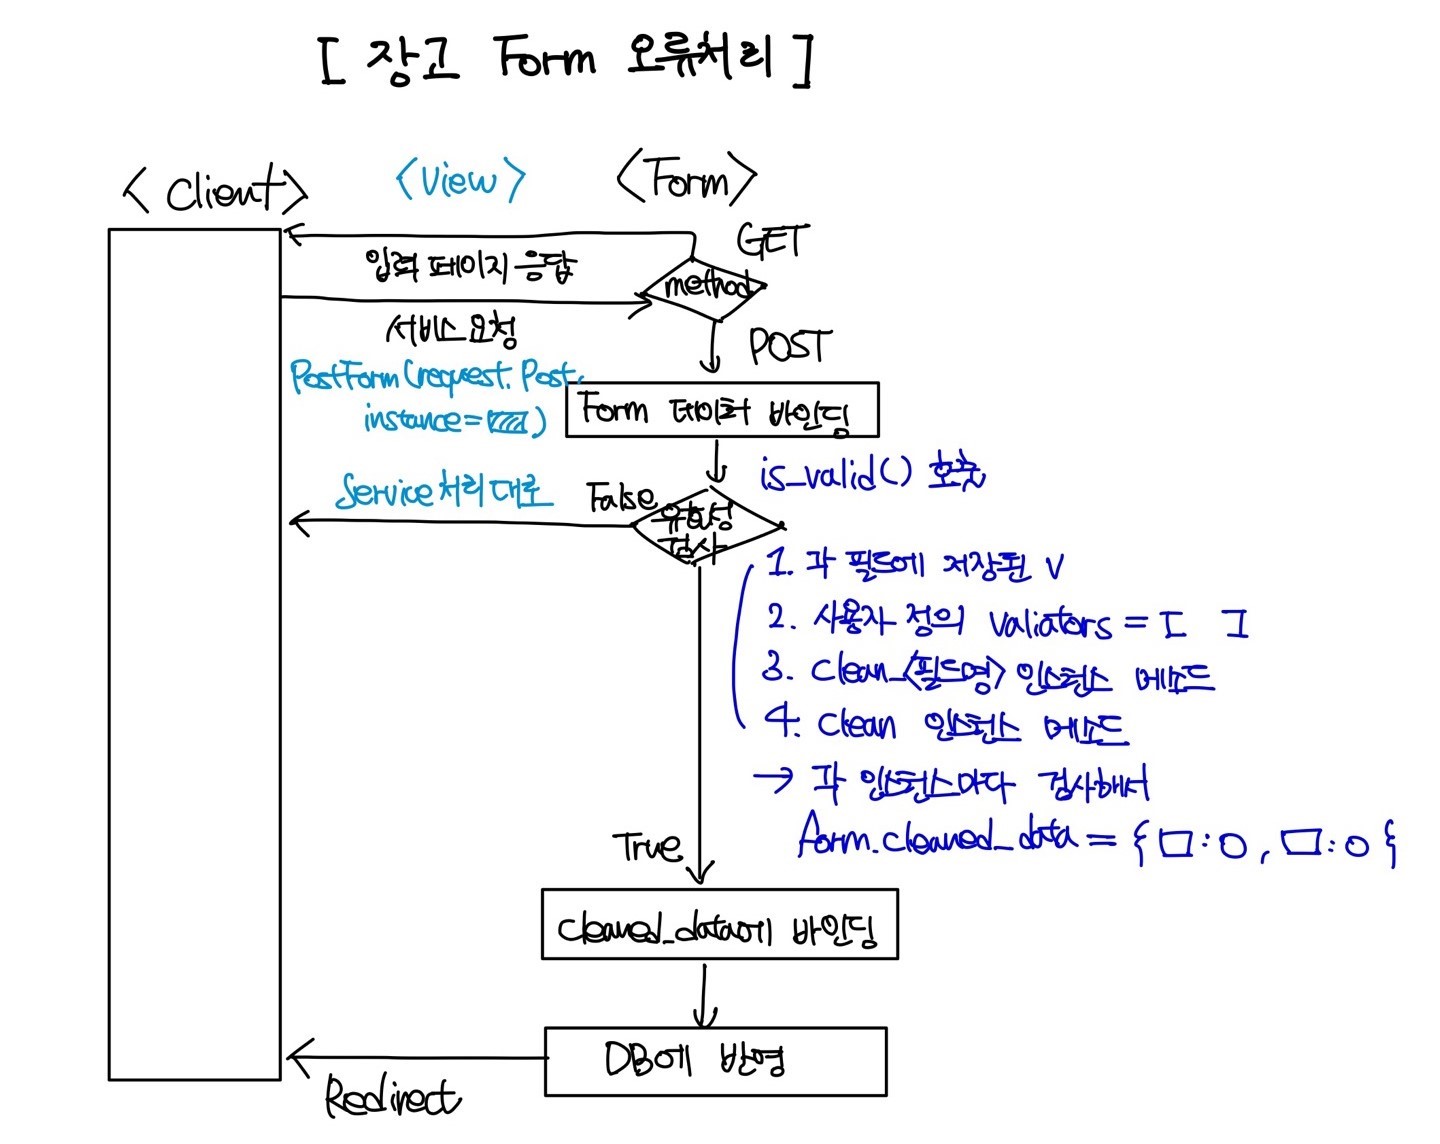 [ 장고 Form 오류처리 ]
< Client >
<View>
<Form>
GET
입력 페이지 응답
method
서비스 요청
POST
PostForm(request.Post,
instance=     )
Form 데이터 바인딩
is_valid() 호출
Service 처리 대로
False
유효성
검사
1. 각 필드에 저장된 V
2. 사용자 정의 valiators = [ ]
3. clean_<필드명> 인스턴스 메소드
4. clean 인스턴스 메소드
→ 각 인스턴스마다 검사해서
form.cleaned_data = { □:○, □:○ {
True
cleaned_data에 바인딩
DB에 반영
Redirect